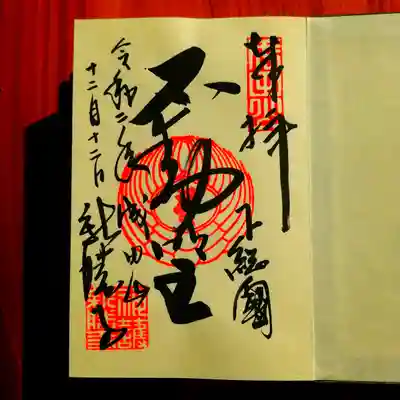 奉拝
下総國
不動明王
令和二年 成田山
十二月十二日 新勝寺